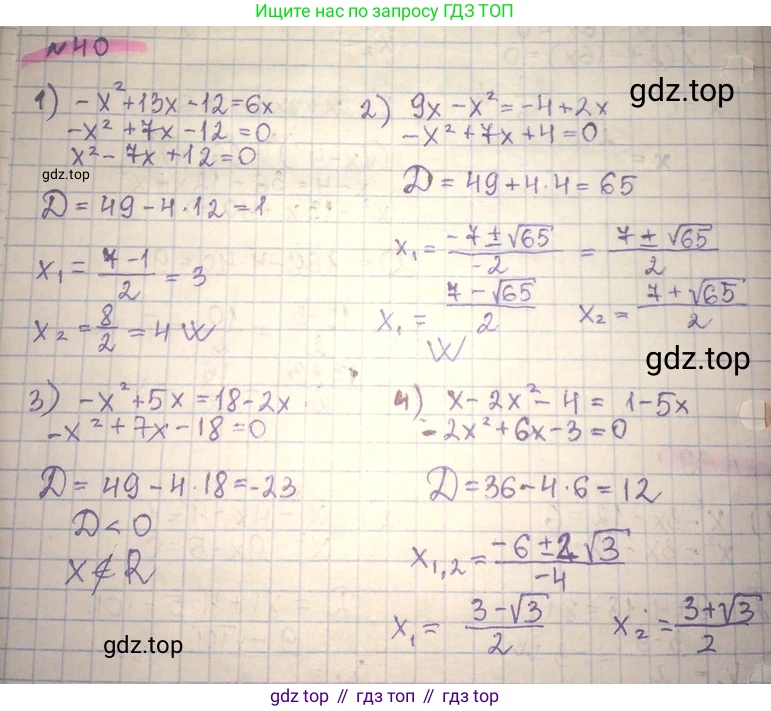 Ищите нас по запросу ГДЗ ТОП
№40
1) -x²+13x-12=6x
-x²+7x-12=0
x²-7x+12=0
gdz.top
D=49-4·12=1
x₁=(7-1)/2=3
x₂=8/2=4 W
2) 9x-x²=-4+2x
-x²+7x+4=0
gdz.top
D=49+4·4=65
x₁=(-7±√65)/-2=(7±√65)/2
x₁=(7-√65)/2 x₂=(7+√65)/2
W
gdz.top
3) -x²+5x=18-2x
-x²+7x-18=0
D=49-4·18=-23
D<0
x∉R
gdz.top
4) x-2x²-4=1-5x
-2x²+6x-3=0
D=36-4·6=12
x₁,₂=(-6±2√3)/-4
x₁=(3-√3)/2 x₂=(3+√3)/2
gdz top // гдз топ // gdz top